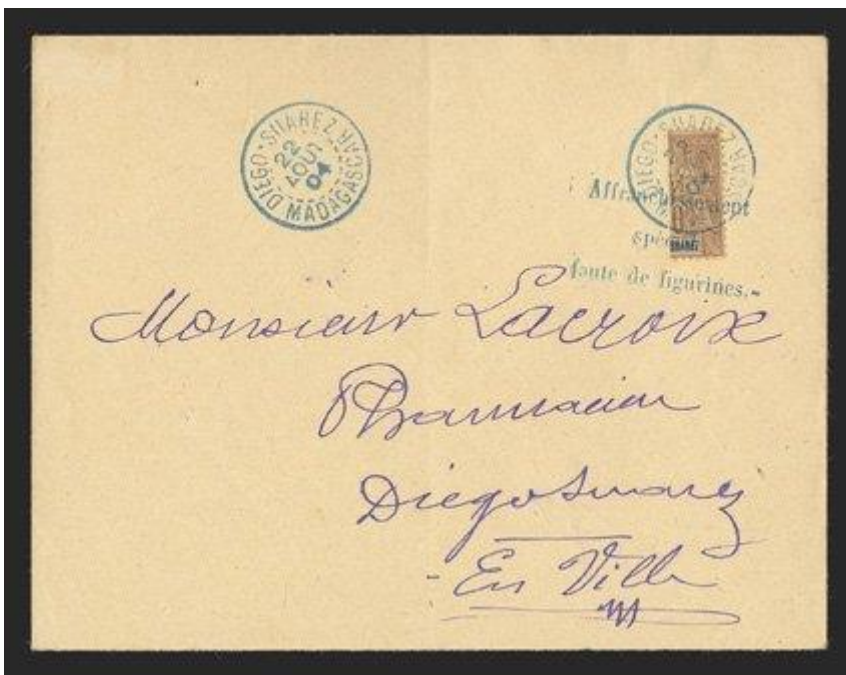 DIEGO-SUAREZ MADAGASCAR
22
AOUT
04
DIEGO-SUAREZ
04
Affranchissement
spécial
faute de figurines.-
SUAREZ
Monsieur Lacroix
Pharmacien
Diego Suarez
- En Ville